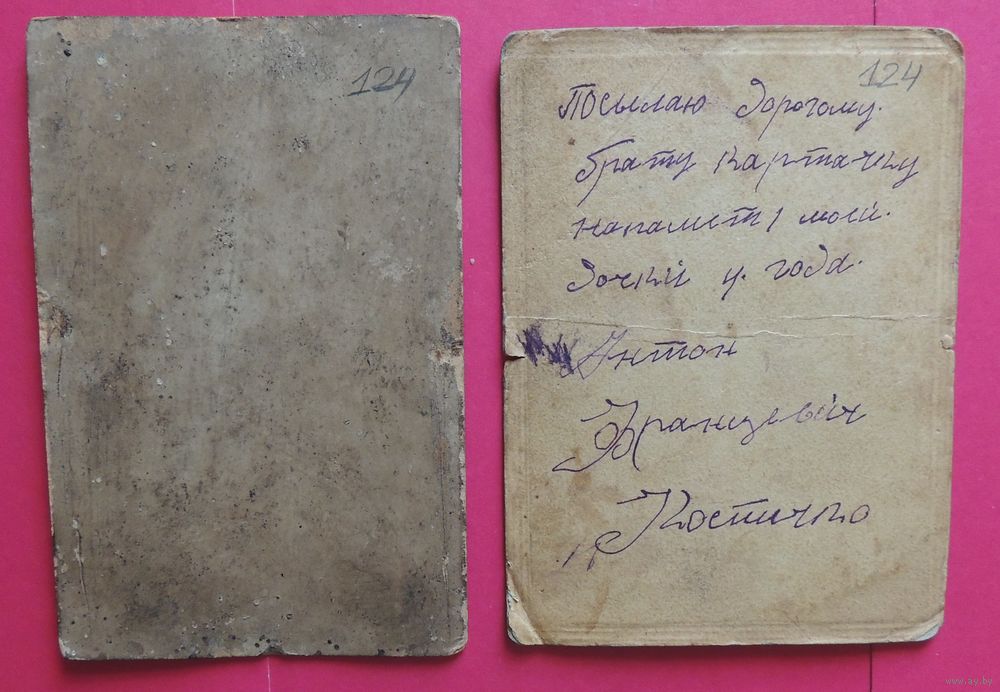 124
124
Посылаю дорогому.
брату картачку
напаметь моей.
дочки ц. года.
Антон
Францевич
Костичко
www.ay.by